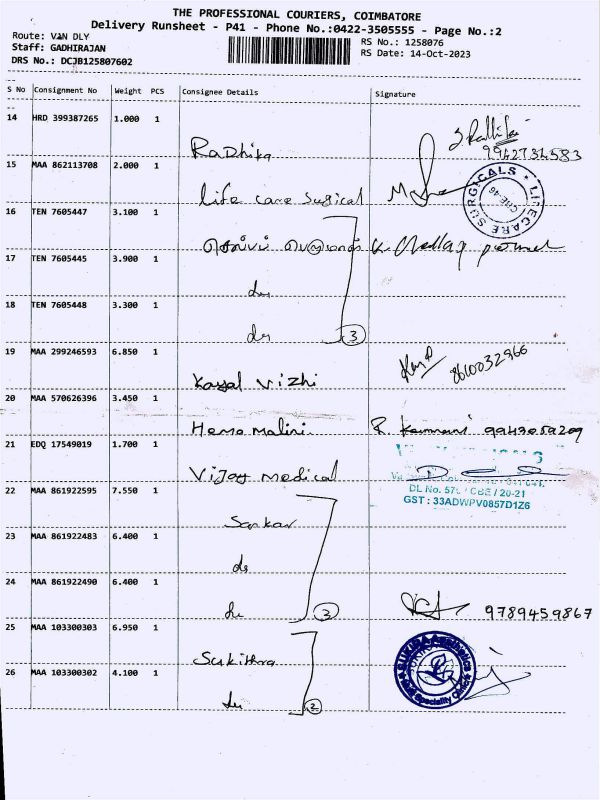 THE PROFESSIONAL COURIERS, COIMBATORE
Delivery Runsheet - P41 - Phone No.:0422-3505555 - Page No.:2
Route: VAN DLY
Staff: GADHIRAJAN
DRS No.: DCJB125807602
RS No.: 1258076
RS Date: 14-Oct-2023
S No Consignment No Weight PCS Consignee Details Signature
14 HRD 399387265 1.000 1
Radhika 9942734583
15 MAA 862113708 2.000 1
life care surgical
SURGICALS LIFECARE CBE-46
16 TEN 7605447 3.100 1
17 TEN 7605445 3.900 1
do
18 TEN 7605448 3.300 1
do 3
19 MAA 299246593 6.850 1
Kayal Vizhi 8610032966
20 MAA 570626396 3.450 1
Hema Malini R. 9943059209
21 EDQ 17549019 1.700 1
Vijay Medical
DL No. CBE / 20-21
GST : 33ADWPV0857D1Z6
22 MAA 861922595 7.550 1
Sankar
23 MAA 861922483 6.400 1
do
24 MAA 861922490 6.400 1
do 3 9789459867
25 MAA 103300303 6.950 1
Sukithra
SUKIRA Aesthetics Speciality Clinic
26 MAA 103300302 4.100 1
do 2